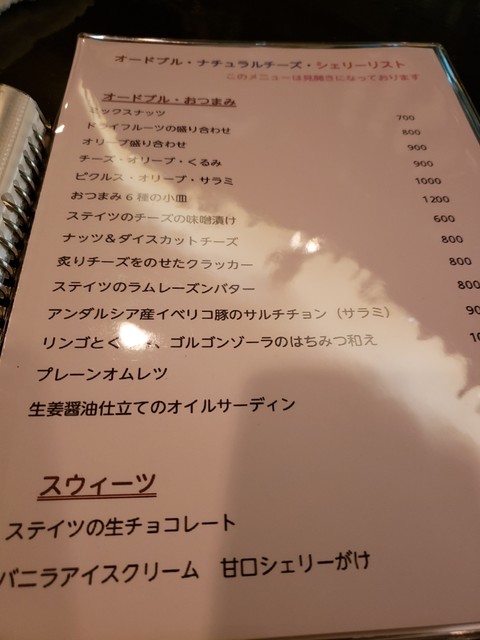 オードブル・ナチュラルチーズ・シェリーリスト
このメニューは見開きになっております
オードブル・おつまみ
ミックスナッツ 700
ドライフルーツの盛り合わせ 800
オリーブ盛り合わせ 900
チーズ・オリーブ・くるみ 900
ピクルス・オリーブ・サラミ 1000
おつまみ6種の小皿 1200
ステイツのチーズの味噌漬け 600
ナッツ&ダイスカットチーズ 800
炙りチーズをのせたクラッカー 800
ステイツのラムレーズンバター 800
アンダルシア産イベリコ豚のサルチチョン(サラミ) 90
リンゴとく 、ゴルゴンゾーラのはちみつ和え 10
プレーンオムレツ
生姜醤油仕立てのオイルサーディン
スウィーツ
ステイツの生チョコレート
バニラアイスクリーム 甘口シェリーがけ